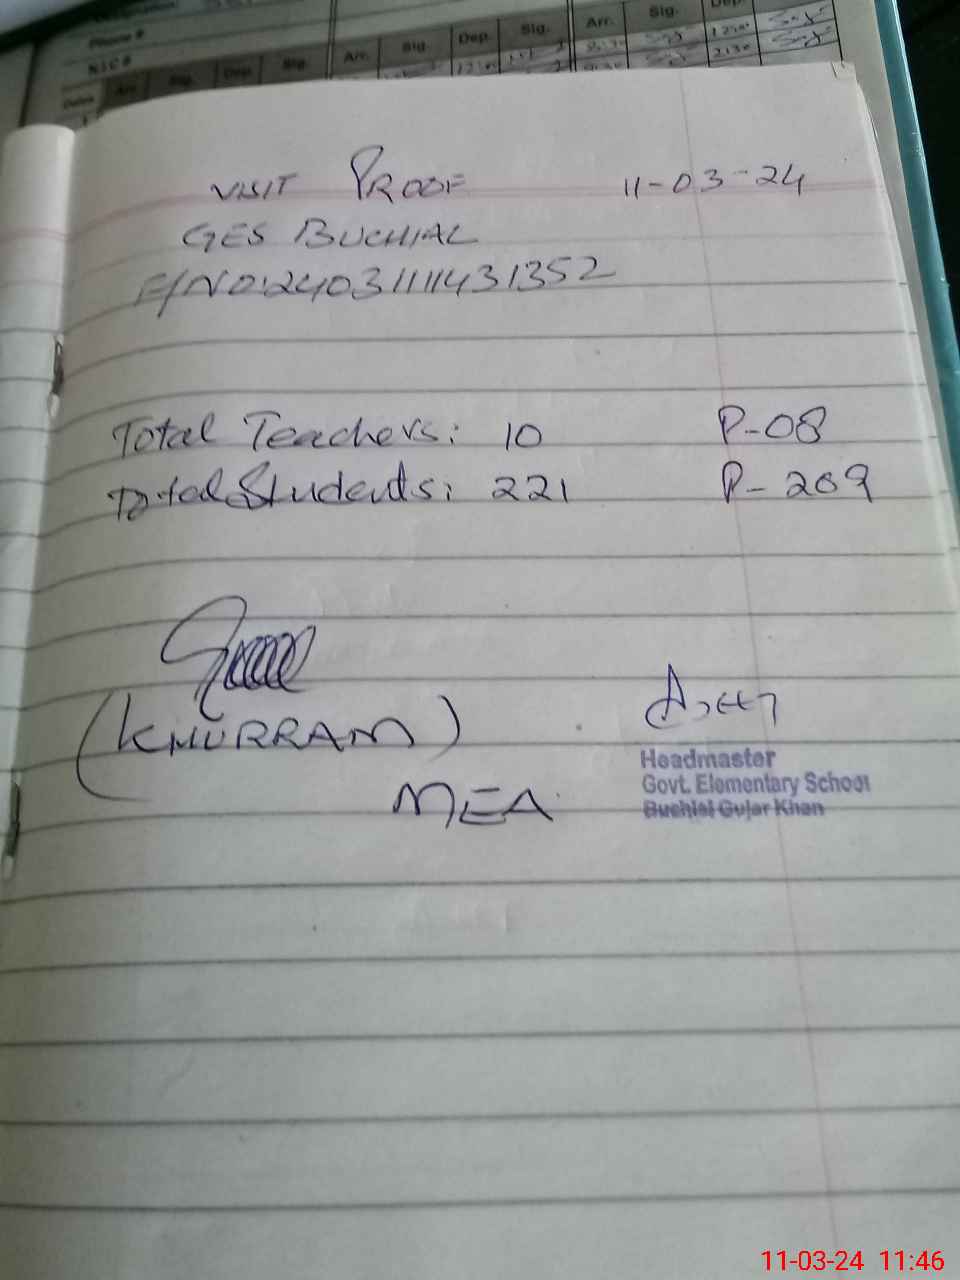 Phone #
NIC #
Dates Arr. Sig. Dep. Sig. Arr. Sig. Dep. Sig. Arr. Sig. Dep.
VISIT PROOF 11-03-24
GES BUCHIAL
F/NO:24031111431352
Total Teachers: 10 P-08
Total Students: 221 P-209
(KHURRAM)
MEA
Headmaster
Govt. Elementary School
Buchial Gujar Khan
11-03-24 11:46